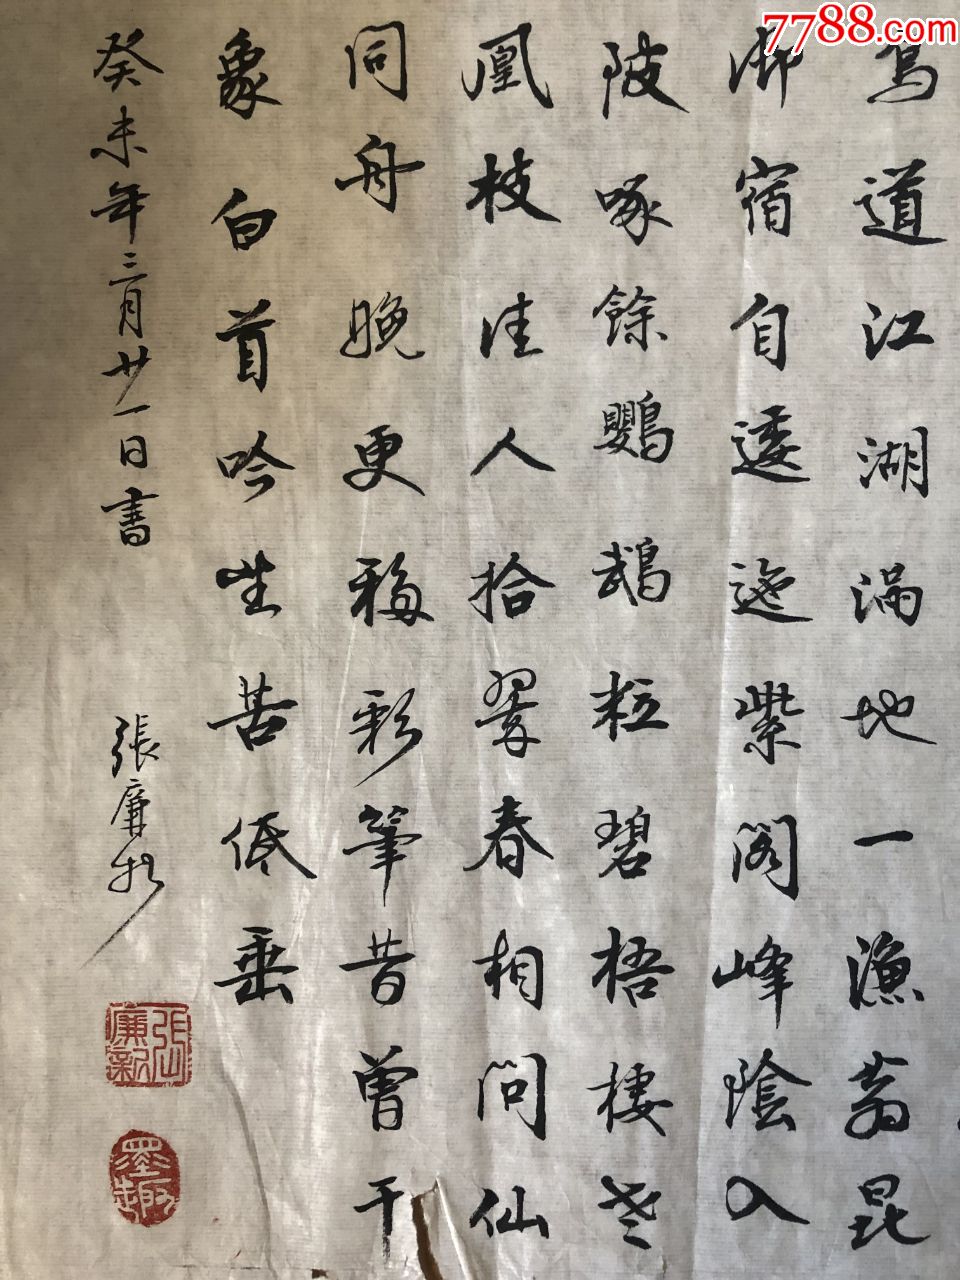 7788.com
鳥道江湖滿地一漁翁昆
御宿自逶迤紫閣峰陰入
陂啄餘鸚鵡粒碧梧棲老
凰枝佳人拾翠春相問仙
同舟晚更移彩筆昔曾干
象白首吟望苦低垂
癸未年三月廿一日書 張廉新
張廉新
墨趣